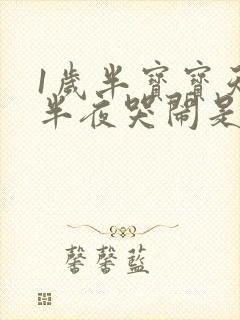 1歲半寶寶天
半夜哭鬧是
馨馨藍